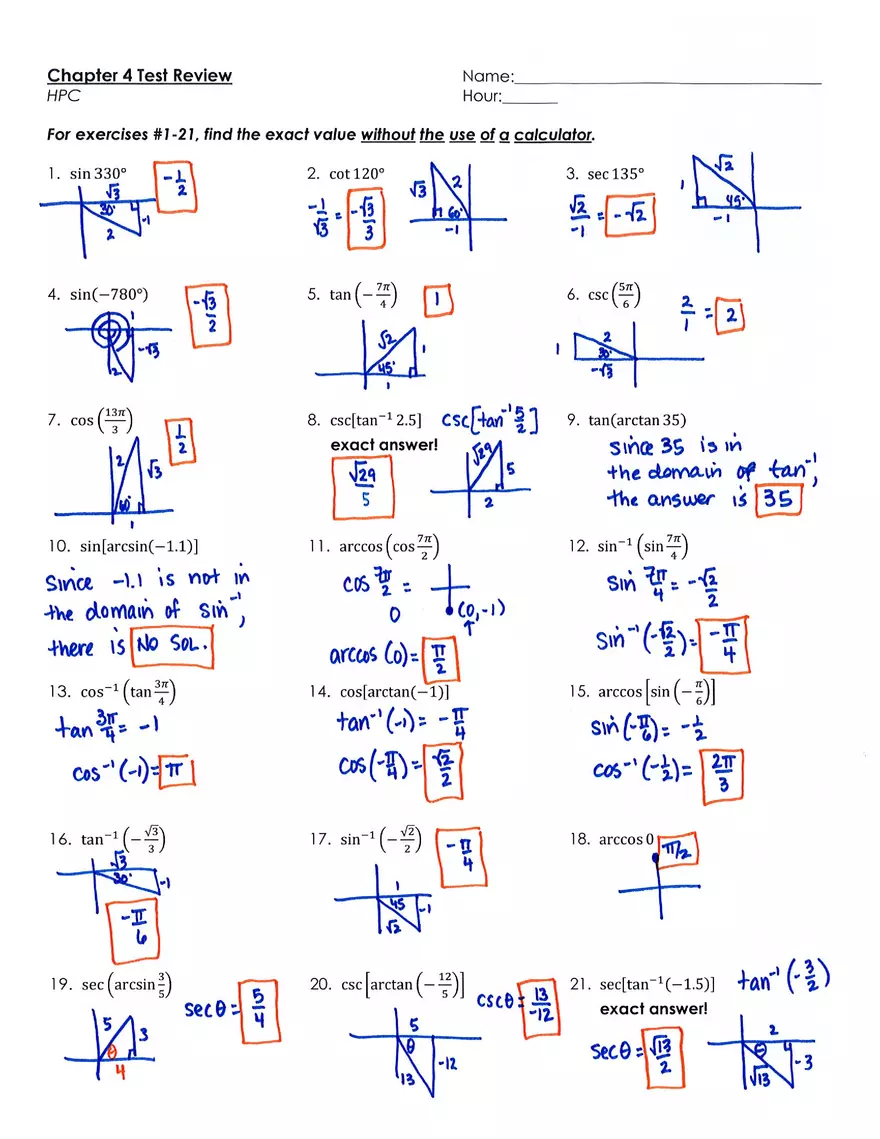 Chapter 4 Test Review
Name:
HPC
Hour:
For exercises #1-21, find the exact value without the use of a calculator.
1. sin 330°
-1/2
√3
30°
-1
2
2. cot 120°
-1/√3 = -√3/3
√3
2
60°
-1
3. sec 135°
√2/-1 = -√2
√2
1
45°
-1
4. sin(−780°)
-√3/2
1
-√3
2
5. tan (−7π/4)
1
√2
1
45°
1
6. csc (5π/6)
2/1 = 2
2
1
30°
-√3
7. cos (13π/3)
1/2
2
√3
60°
1
8. csc[tan⁻¹ 2.5]
csc[tan⁻¹ 5/2]
exact answer!
√29/5
√29
5
2
9. tan(arctan 35)
since 35 is in
the domain of tan⁻¹,
the answer is 35
10. sin[arcsin(−1.1)]
Since -1.1 is not in
the domain of sin⁻¹,
there is NO SOL.
11. arccos (cos 7π/2)
cos 7π/2 =
0
(0,-1)
↑
arccos (0)= π/2
12. sin⁻¹ (sin 7π/4)
sin 7π/4 = -√2/2
sin⁻¹ (-√2/2) = -π/4
13. cos⁻¹ (tan 3π/4)
tan 3π/4 = -1
cos⁻¹ (-1) = π
14. cos[arctan(−1)]
tan⁻¹ (-1) = -π/4
cos (-π/4) = √2/2
15. arccos [sin (−π/6)]
sin (-π/6) = -1/2
cos⁻¹ (-1/2) = 2π/3
16. tan⁻¹ (−√3/3)
√3
30°
-1
-π/6
17. sin⁻¹ (−√2/2)
-π/4
1
45
-1
√2
18. arccos 0
π/2
19. sec (arcsin 3/5)
secθ = 5/4
5
3
θ
4
20. csc [arctan (−12/5)]
cscθ = 13/-12
5
θ
-12
13
21. sec[tan⁻¹(−1.5)]
tan⁻¹ (-3/2)
exact answer!
secθ = √13/2
2
θ
-3
√13